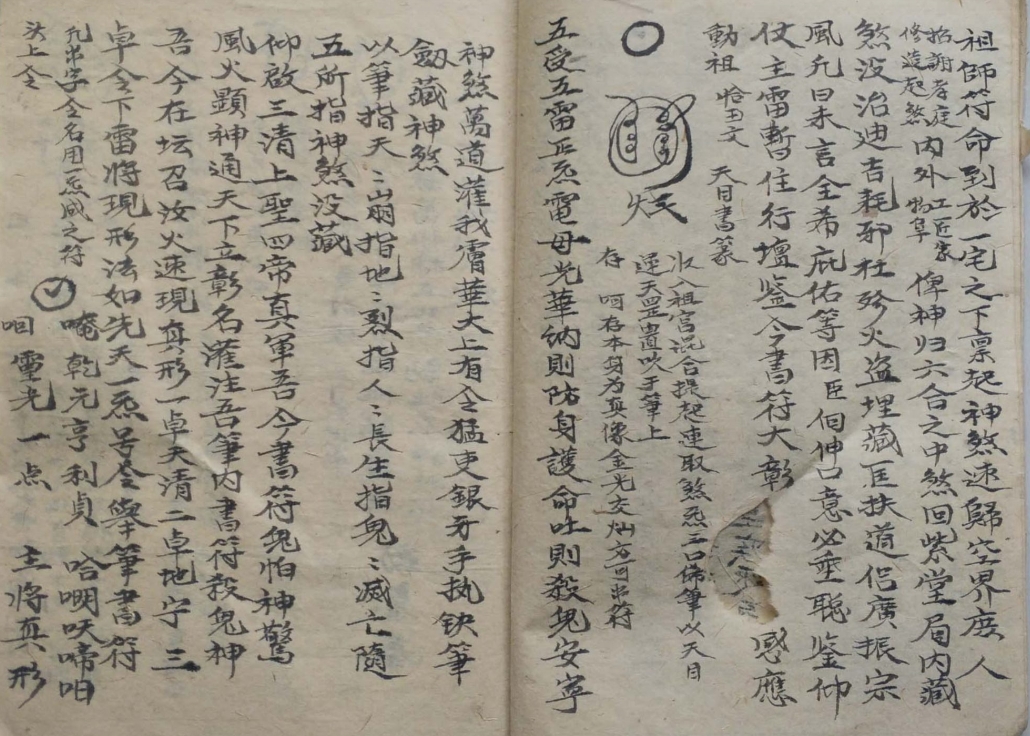 祖師符命到於一宅之下禀起神煞速歸空界度人
修造起煞 内外 工匠家 物阜 俾神归六合之中煞回紫堂局内藏
煞没治迪吉耗邪社殄火盗埋藏匡扶道侣廣振宗
風凡曰未言全希庇佑等因臣佪伸己意必垂聪鉴仰
仗主雷暫住行壇鉴今書符大彰 感應
動祖 恰雨文 天目書篆
炁
收入祖宫混合提起連取煞炁三口佈筆以天目
逆天罡書吹于筆上
存 呵存本身为真像金光交灿方可串符
五受五雷正炁電母光華纳則防身護命吐則殺鬼安寧
神煞萬道灌我膚華大上有令猛吏銀牙手执鉄筆
劔藏神煞
以筆指天〻崩指地〻裂指人〻長生指鬼〻滅亡隨
五所指神煞没藏
仰啟三清上聖四帝真軍吾今書符鬼怕神驚
風火顯神通天下立彰名灌注吾筆内書符殺鬼神
吾今在坛召汝火速現真形一卓天清二卓地宁三
卓令下雷将現形法如先天一炁号令舉筆書符
凡串字令名用一炁成之符 唵乾元亨利貞 哈㘇吠啼呾
头上令 咽 靈光一点 主將真形